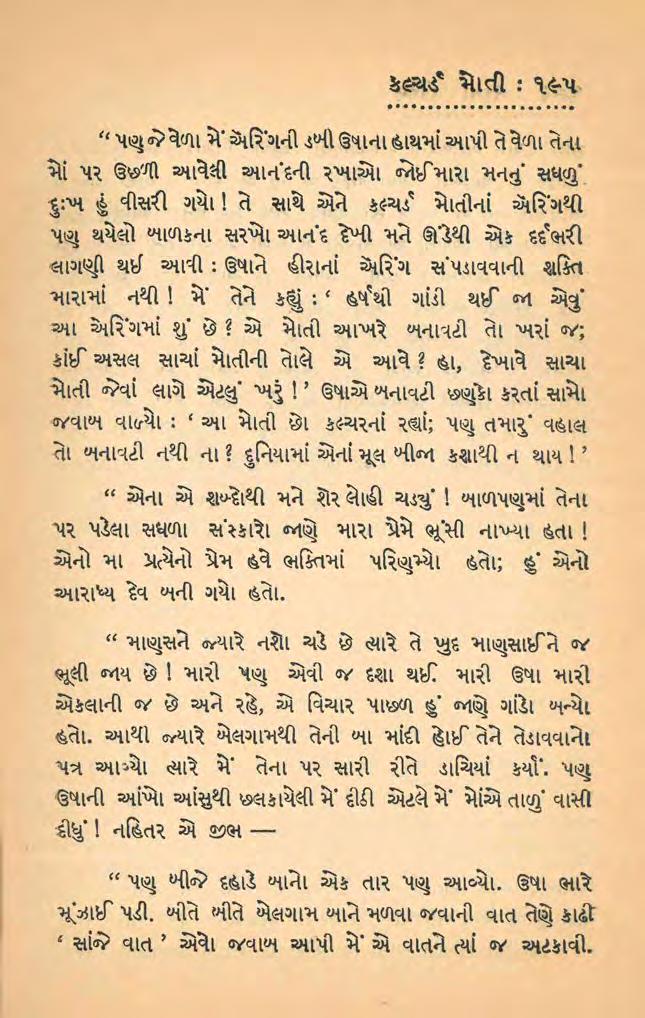 કલ્ચર્ડ મોતી : ૧૯૫
“ પણ જે વેળા મેં એરિંગની ડબી ઉષાના હાથમાં આપી તે વેળા તેના
મોં પર ઉછળી આવેલી આનંદની રેખાઓ જોઈ મારા મનનું સઘળું
દુઃખ હું વીસરી ગયો ! તે સાથે એને કલ્ચર્ડ મોતીનાં એરિંગથી
પણ થયેલો બાળકના સરખો આનંદ દેખી મને ઊંડેથી એક દર્દભરી
લાગણી થઈ આવી : ઉષાને હીરાનાં એરિંગ સંપડાવવાની શક્તિ
મારામાં નથી ! મેં તેને કહ્યું : ‘ હર્ષથી ગાંડી થઈ જા એવું
આ એરિંગમાં શું છે ? એ મોતી આખરે બનાવટી તો ખરાં જ;
કાંઈ અસલ સાચાં મોતીની તોલે એ આવે ? હા, દેખાવે સાચા
મોતી જેવાં લાગે એટલું ખરું !’ ઉષાએ બનાવટી છણકો કરતાં સામો
જવાબ વાળ્યો : ‘ આ મોતી છો કલ્ચરનાં રહ્યાં; પણ તમારું વહાલ
તો બનાવટી નથી ના ? દુનિયામાં એનાં મૂલ બીજા કશાથી ન થાય ! ’
“ એના એ શબ્દોથી મને શેર લોહી ચડ્યું ! બાળપણમાં તેના
પર પડેલા સઘળા સંસ્કારો જાણે મારા પ્રેમે ભૂંસી નાખ્યા હતા !
એનો મા પ્રત્યેનો પ્રેમ હવે ભક્તિમાં પરિણમ્યો હતો; હું એનો
આરાધ્ય દેવ બની ગયો હતો.
“ માણસને જ્યારે નશો ચડે છે ત્યારે તે ખુદ માણસાઈને જ
ભૂલી જાય છે ! મારી પણ એવી જ દશા થઈ. મારી ઉષા મારી
એકલાની જ છે અને રહે, એ વિચાર પાછળ હું જાણે ગાંડો બન્યો
હતો. આથી જ્યારે બેલગામથી તેની બા માંદી હોઈ તેને તેડાવવાનો
પત્ર આવ્યો ત્યારે મેં તેના પર સારી રીતે ડાચિયાં કર્યાં. પણ
ઉષાની આંખો આંસુથી છલકાયેલી મેં દીઠી એટલે મેં મોંએ તાળું વાસી
દીધું ! નહિતર એ જીભ —
“ પણ બીજે દહાડે બાનો એક તાર પણ આવ્યો. ઉષા ભારે
મૂંઝાઈ પડી. બીતે બીતે બેલગામ બાને મળવા જવાની વાત તેણે કાઢી
‘ સાંજે વાત ’ એવો જવાબ આપી મેં એ વાતને ત્યાં જ અટકાવી.